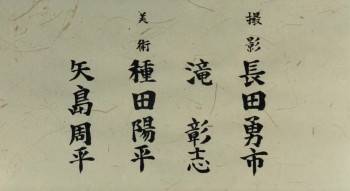 撮影
長田勇市
滝　彰志
美術
種田陽平
矢島周平